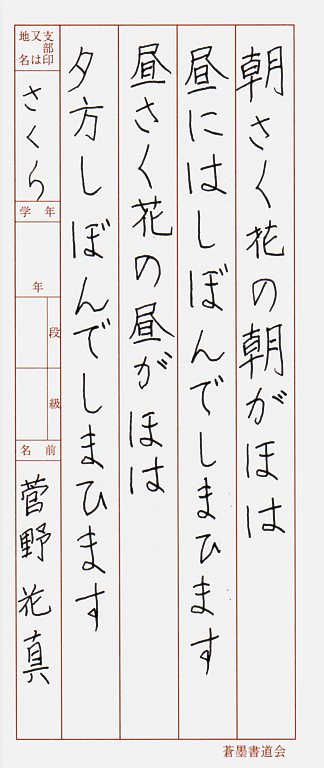 朝さく花の朝がほは
昼にはしぼんでしまひます
昼さく花の昼がほは
夕方しぼんでしまひます
支部印
又は
地名
さくら
学年
年
段
級
名前
菅野花真
蒼墨書道会